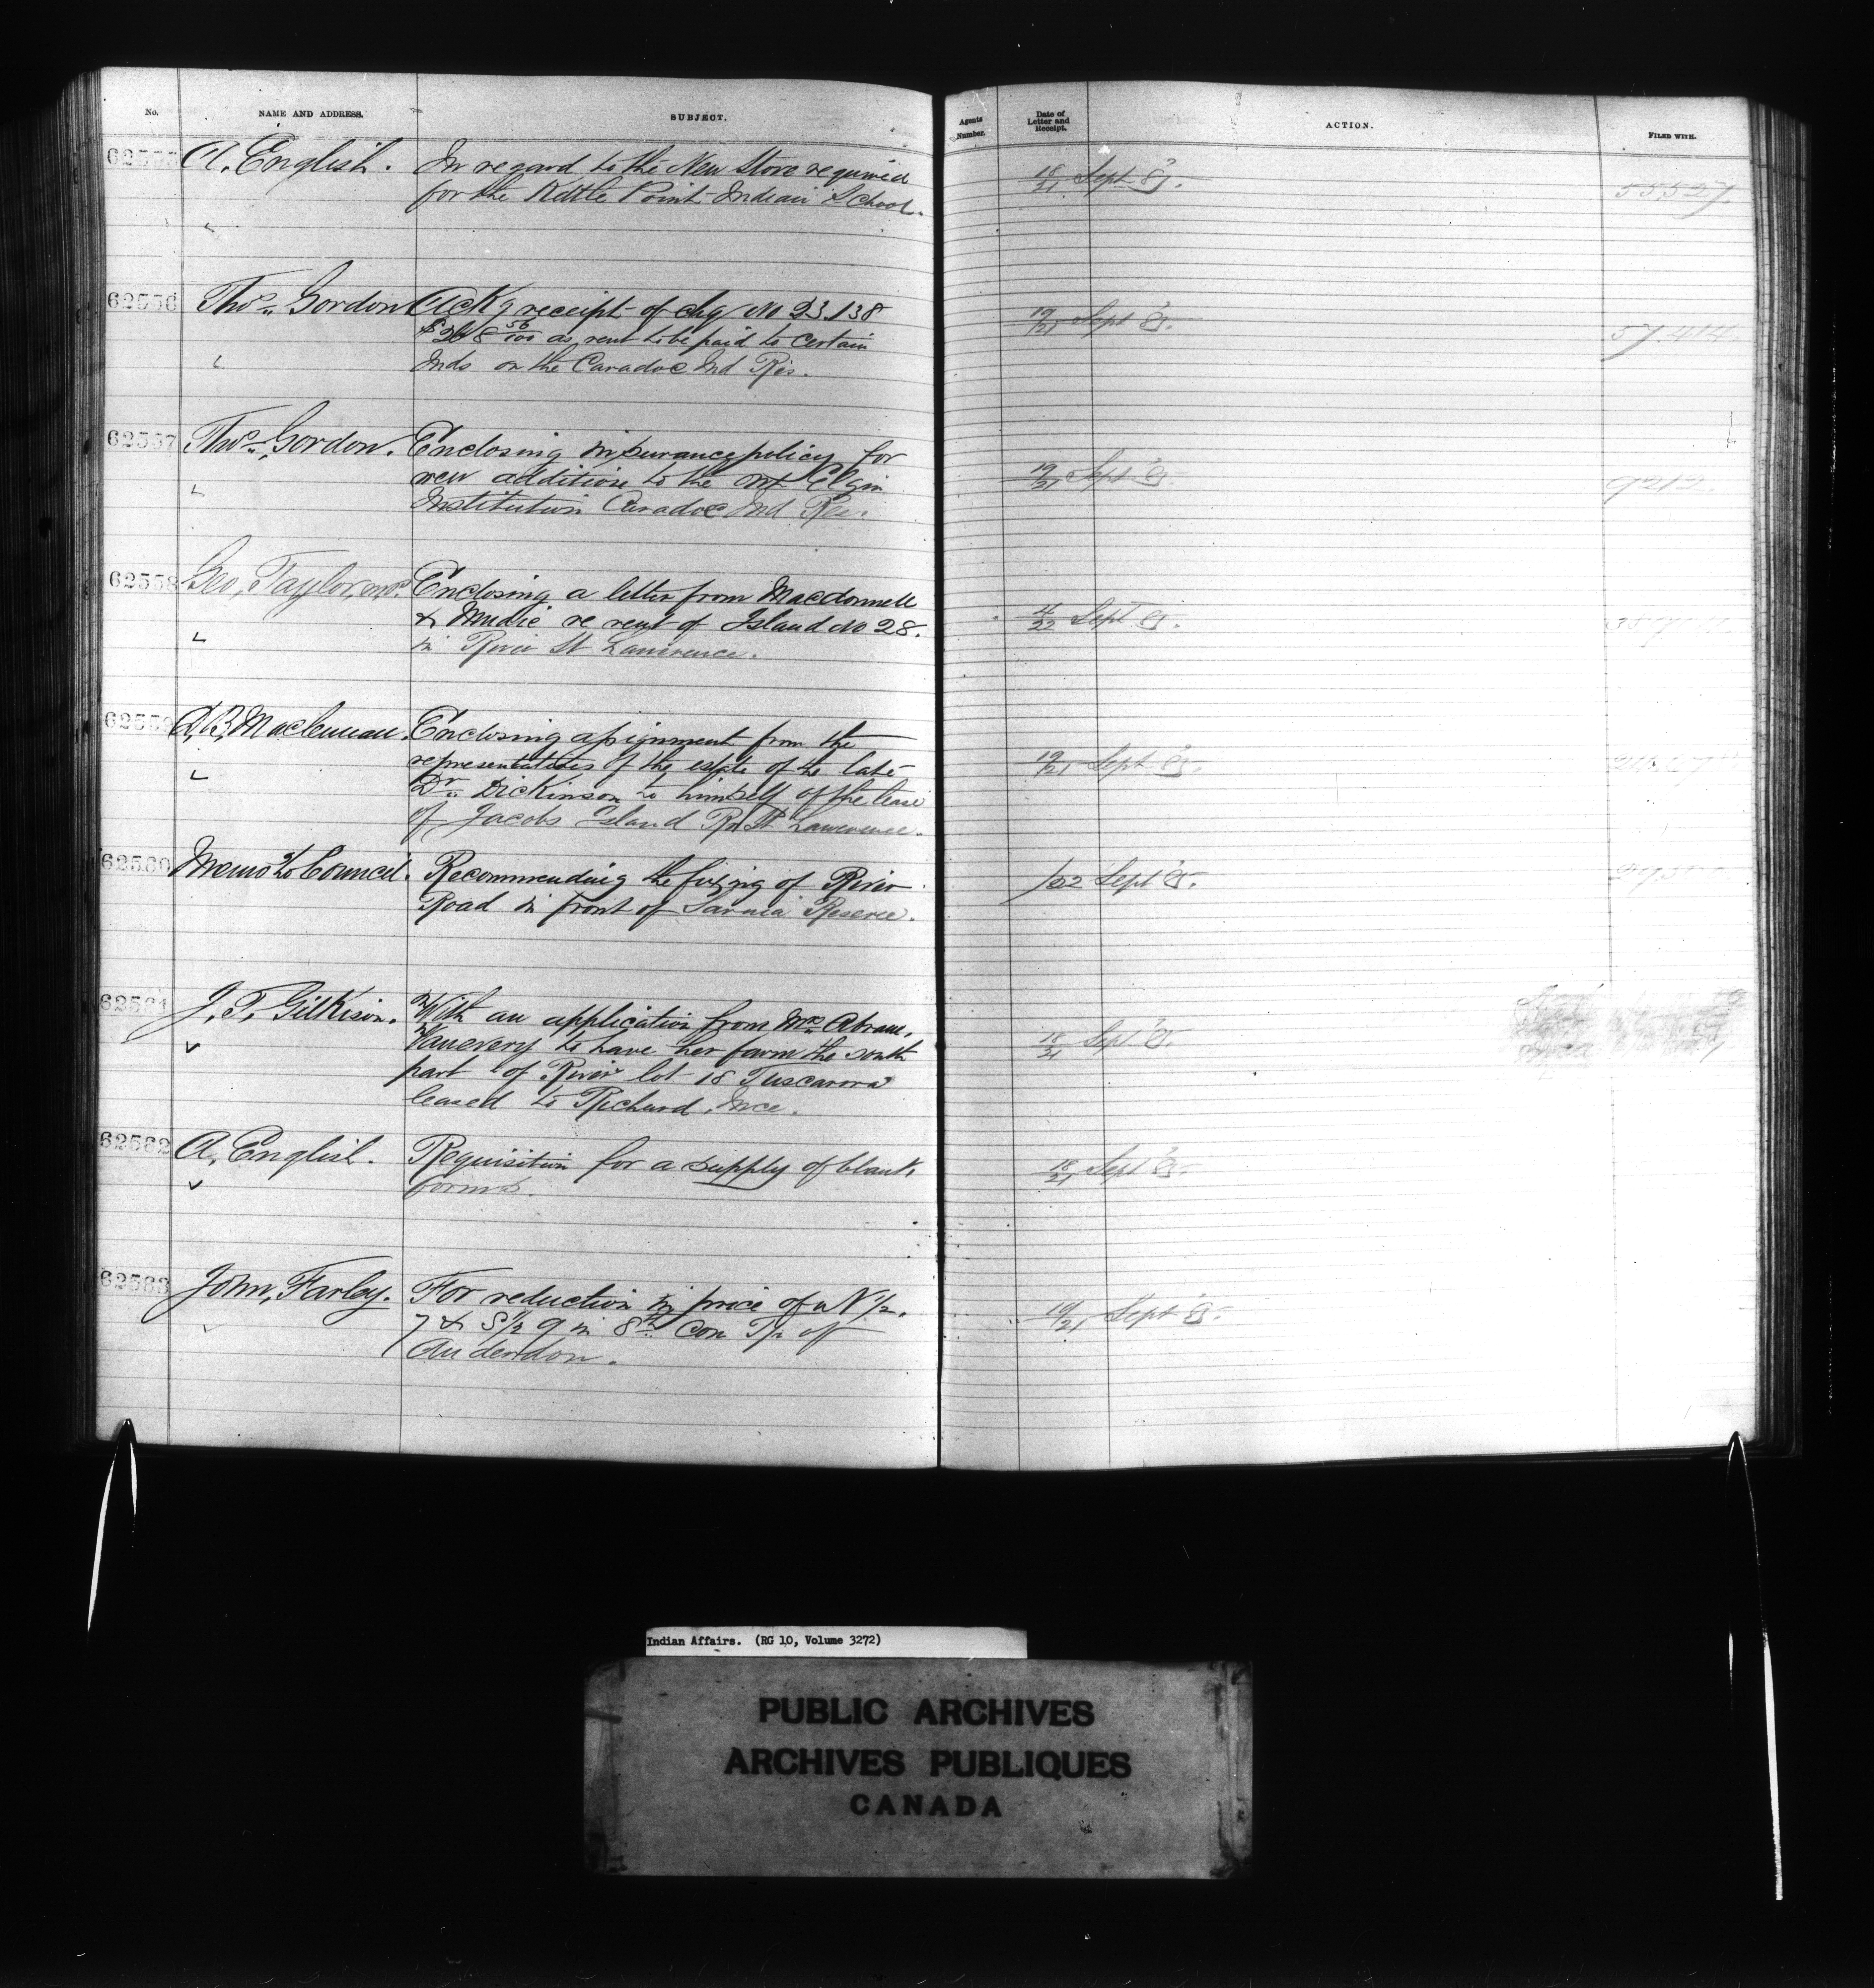 No. NAME AND ADDRESS. SUBJECT. Agents Number. Date of Letter and Receipt. ACTION. FILED WITH.
62555 A. English. In regard to the New Stove required 18/21 Sept 85. 55,527.
for the Kettle Point Indian School.
62556 Thos. Gordon Ackg receipt of chq No 23.138 19/21 Sept 85. 57.414.
as rent to be paid to certain
Inds on the Caradoc Ind Res.
62557 Thos. Gordon. Enclosing insurance policy for 19/21 Sept 85. 9212.
new addition to the Mt Elgin
Institution Caradoc Ind Res.
62558 Geo, Taylor, M.P. Enclosing a letter from Macdonnell 4/22 Sept 85.
& Mudie re rent of Island No 28.
in River St Lawrence.
62559 Maclennan. Enclosing assignment from the 19/21 Sept 85.
representatives of the estate of the late
Dr. Dickinson to himself of the lease
of Jacobs Island Rr St Lawrence.
62560 Memo to Council. Recommending the fixing of River /22 Sept 85.
Road in front of Sarnia Reserve.
62561 J. T. Gilkison. With an application from Mrs Abram, 18/21 Sept 85.
Vanevery to have her farm the south
part of River lot 18 Tuscarora
leased to Richard Ince.
62562 A. English. Requisition for a supply of blank 18/21 Sept 85.
forms.
62563 John, Farley. For reduction in price of N 1/2. 19/21 Sept 85.
7 & S 1/2 9 in 8th Con Tp of
Anderdon.
Indian Affairs. (RG 10, Volume 3272)
PUBLIC ARCHIVES
ARCHIVES PUBLIQUES
CANADA